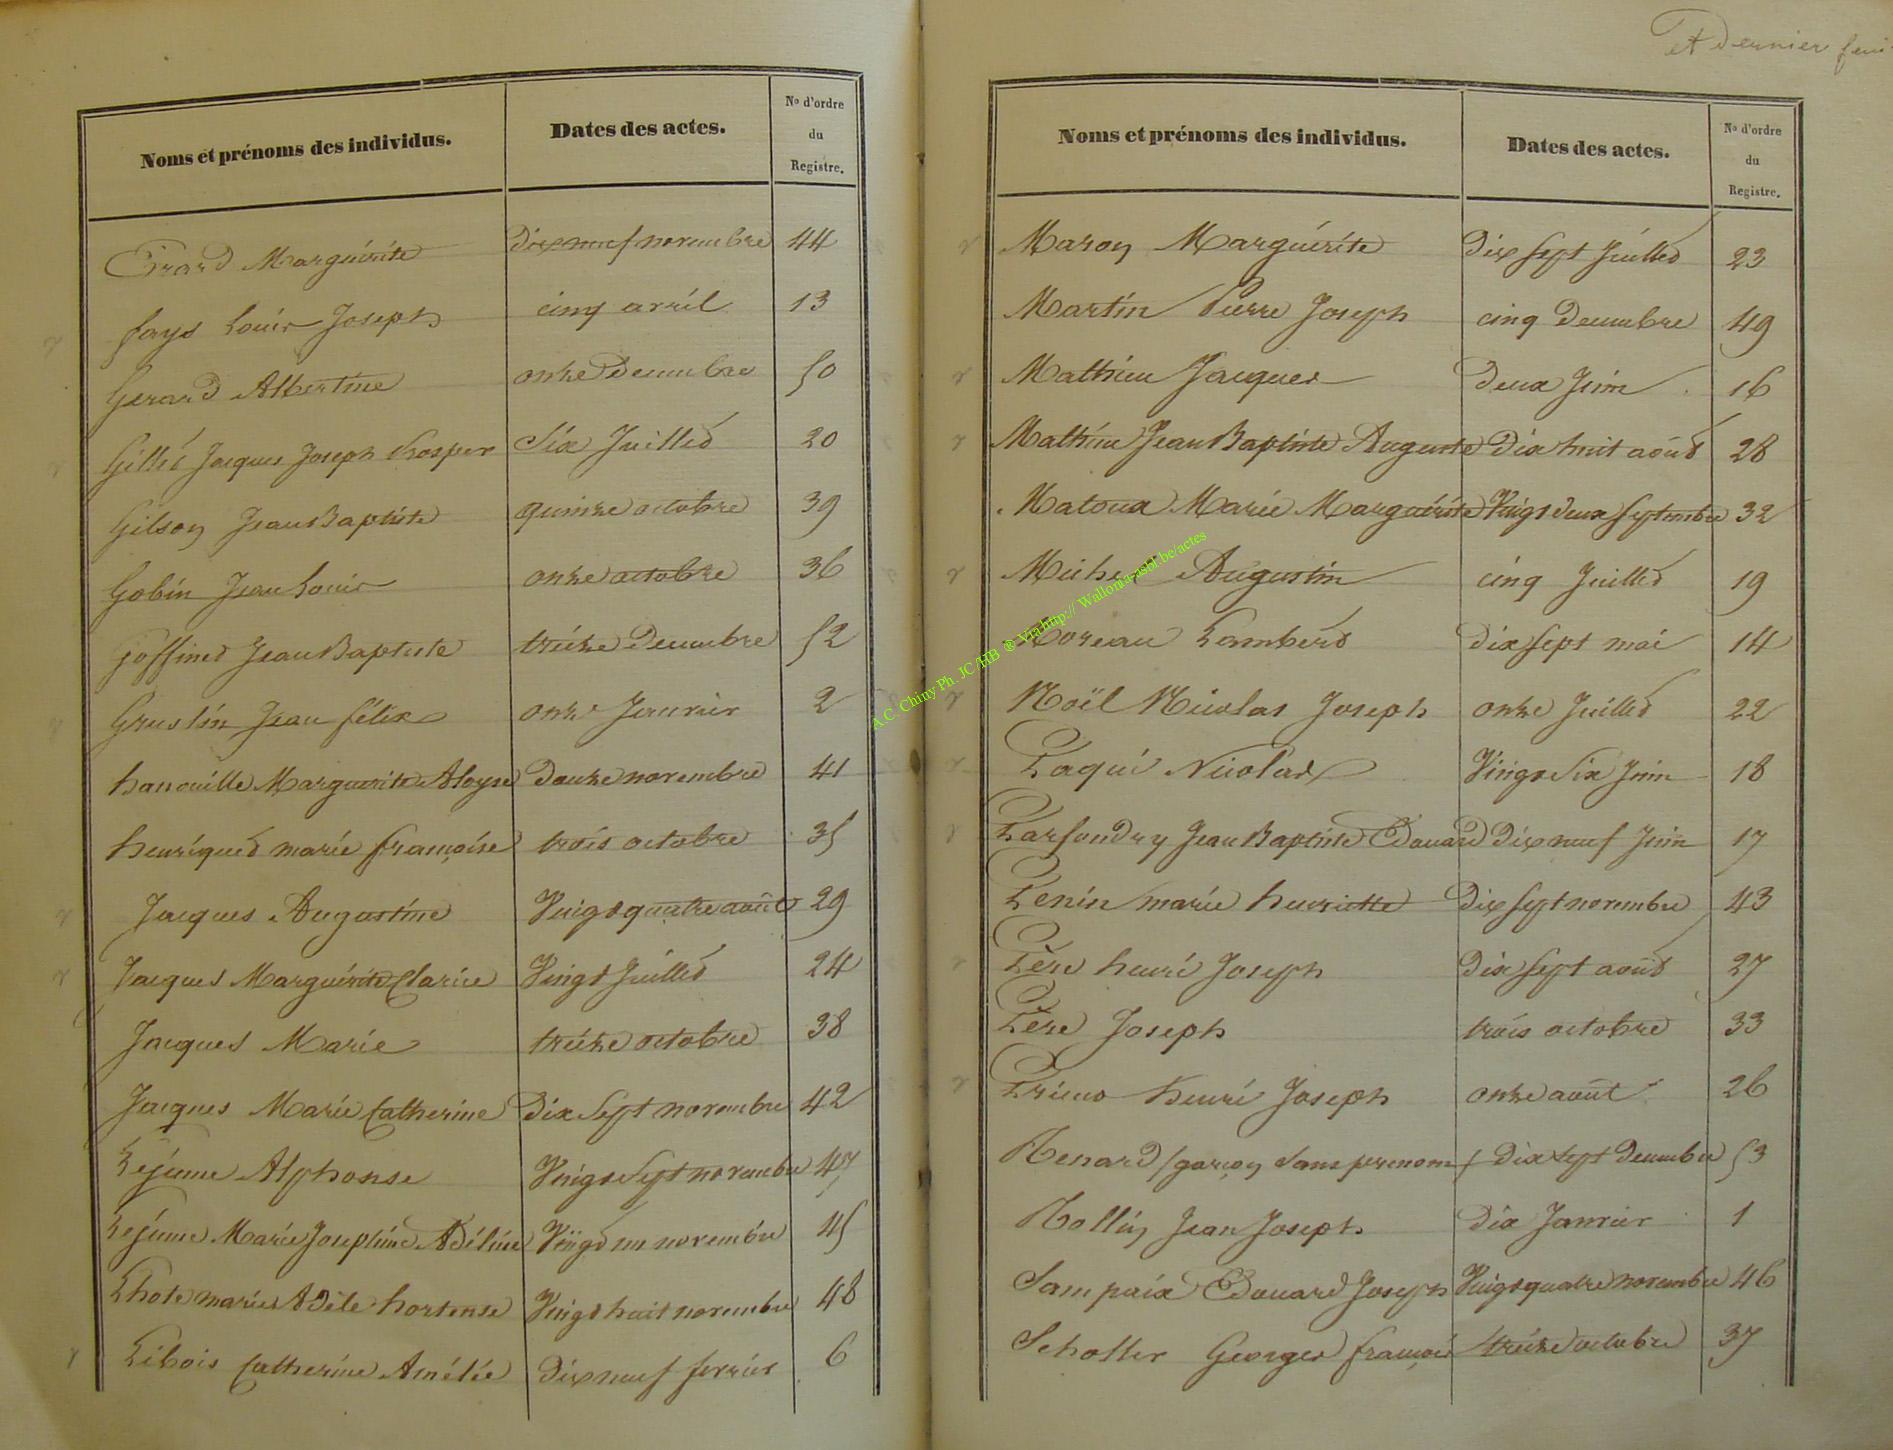 Noms et prénoms des individus. Dates des actes. No d'ordre du Registre.
Erard Marguérite Dix neuf novembre 44
fays Louis Joseph cinq avril 13
Gerard Albertine onze Decembre 50
Gillet Jacques Joseph Prosper Six Juillet 20
Gilson Jean Baptiste quinze octobre 39
Gobin Jean Louis onze octobre 36
Goffinet Jean Baptiste treize Decembre 52
Gruslin Jean félix onze Janvier 2
hanouille Marguerite Aloyse Douze novembre 41
henriquet marie françoise trois octobre 35
Jacques Augustine Vingt quatre août 29
Jacques Marguérite Clarice Vingt Juillet 24
Jacques Marie treize octobre 38
Jacques Marie Catherine Dix Sept novembre 42
Lejeune Alphonse Vingt Sept novembre 47
Lejeune Marie Josephine Adéline Vingt un novembre 45
Lhote marie Adèle hortense Vingt huit novembre 48
Libois Catherine Amélie Dix neuf fevrier 6
et dernier feui
Noms et prénoms des individus. Dates des actes. No d'ordre du Registre.
Maron Marguérite Dix Sept Juillet 23
Martin Pierre Joseph cinq Decembre 49
Mathieu Jacques Deux Juin 16
Mathieu Jean Baptiste Auguste Dix huit août 28
Matoux Marie Marguérite Vingt deux Septembre 32
Michel Augustin cinq Juillet 19
Moreau Lambert Dix Sept mai 14
Noël Nicolas Joseph onze Juillet 22
Paqui Nicolas Vingt Six Juin 18
Parfondry Jean Baptiste Edouard Dix neuf Juin 17
Penin marie henriette Dix Sept novembre 43
Père henri Joseph Dix Sept août 27
Père Joseph trois octobre 33
henri Joseph onze août 26
Renard (garçon Sans prenom) Dix Sept Decembre 53
Rollin Jean Joseph Dix Janvier 1
Sampaix Edouard Joseph Vingt quatre novembre 46
Scholler Georges françois treize octobre 37
A.C. Chiny Ph. JC/HB ® Via http:// Wallonia-asbl.be/actes